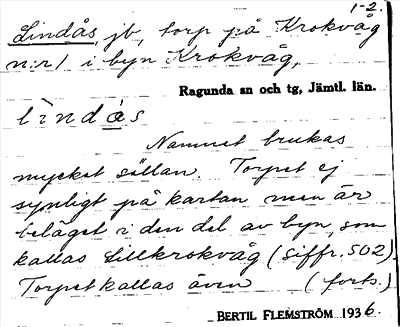 1-2.
Lindås, jb, torp på Krokvåg
n:r 1 i byn Krokvåg,
Ragunda sn och tg, Jämtl. län.
lìndås
Namnet brukas
mycket sällan. Torpet ej
synligt på kartan men är
beläget i den del av byn, som
kallas Lillkrokvåg (siffr. 502).
Torpet kallas även (forts.)
BERTIL FLEMSTRÖM 1936.